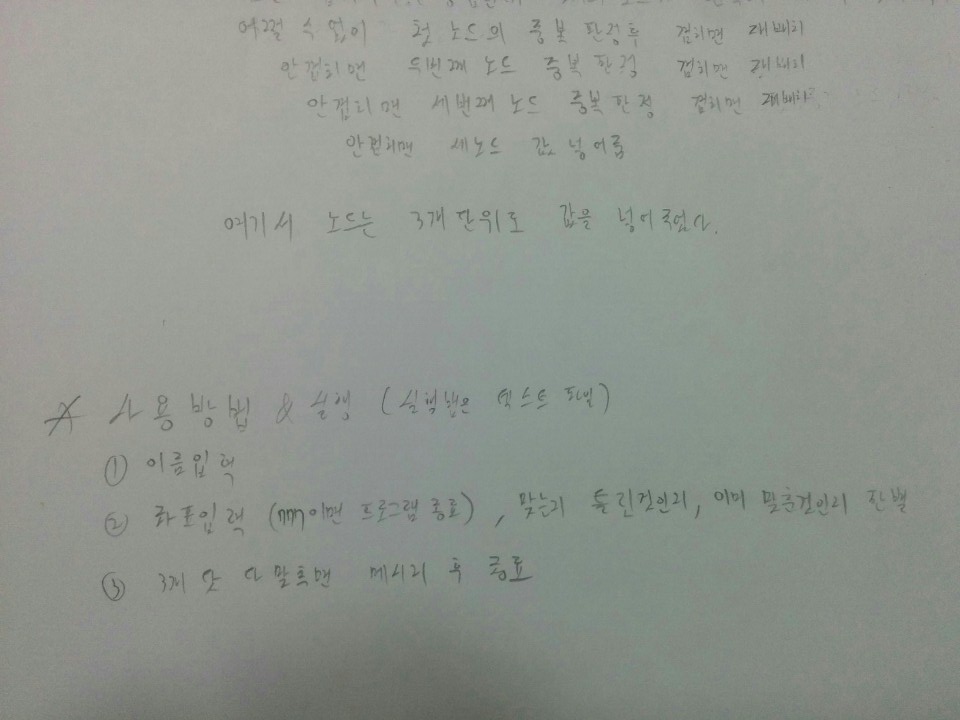 어쩔 수 없이 첫 노드의 중복 판정후 겹히면 재배치
안겹히면 두번째 노드 중복 판정 겹히면 재배치
안겹히면 세번째 노드 중복판정 겹히면 재배치
안겹히면 세노드 값 넣어줌
여기서 노드는 3개 단위로 값을 넣어주었다.
사용방법 & 실행 (실행샘은 텍스트 파일)
① 이름입력
② 좌표입력 (777이면 프로그램 종료), 맞는지 틀린것인지, 이미 맞춘것인지 판별
③ 3개 모두 다 맞추면 메시지 후 종료